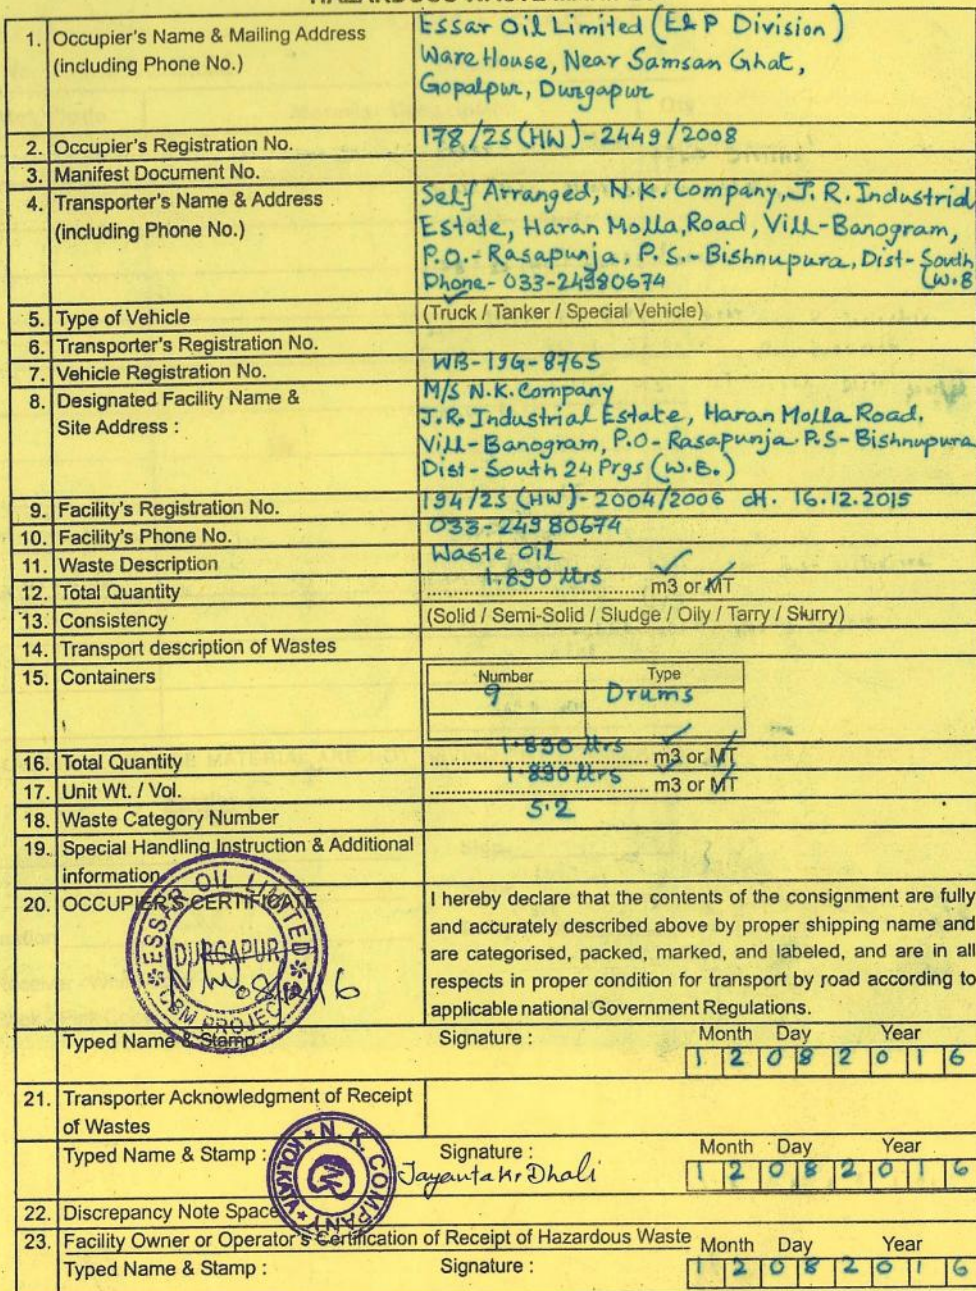 1. Occupier's Name & Mailing Address
(including Phone No.)
Essar Oil Limited (E&P Division)
Ware House, Near Samsan Ghat,
Gopalpur, Durgapur
2. Occupier's Registration No.
178/2S(HW)-2449/2008
3. Manifest Document No.
4. Transporter's Name & Address
(including Phone No.)
Self Arranged, N.K. Company, J.R. Industrial
Estate, Haran Molla, Road, Vill-Banogram,
P.O.- Rasapunja, P.S.- Bishnupura, Dist- South
Phone- 033-24980674 (W.B
5. Type of Vehicle
(Truck / Tanker / Special Vehicle)
6. Transporter's Registration No.
7. Vehicle Registration No.
WB-19G-8765
8. Designated Facility Name &
Site Address :
M/S N.K. Company
J.R. Industrial Estate, Haran Molla Road.
Vill-Banogram, P.O- Rasapunja P.S- Bishnupura
Dist- South 24 Prgs (W.B.)
9. Facility's Registration No.
194/2S (HW)- 2004/2006 dt. 16.12.2015
10. Facility's Phone No.
033-24980674
11. Waste Description
Waste Oil
12. Total Quantity
1.890 ltrs m3 or MT
13. Consistency
(Solid / Semi-Solid / Sludge / Oily / Tarry / Slurry)
14. Transport description of Wastes
15. Containers
Number Type
9 Drums
16. Total Quantity
1.890 ltrs m3 or MT
17. Unit Wt. / Vol.
1.890 ltrs m3 or MT
18. Waste Category Number
5.2
19. Special Handling Instruction & Additional
information
20. OCCUPIER'S CERTIFICATE
I hereby declare that the contents of the consignment are fully
and accurately described above by proper shipping name and
are categorised, packed, marked, and labeled, and are in all
respects in proper condition for transport by road according to
applicable national Government Regulations.
ESSAR OIL LIMITED
DURGAPUR
CBM PROJECT
Typed Name & Stamp :
Signature :
Month Day Year
1 2 0 8 2 0 1 6
21. Transporter Acknowledgment of Receipt
of Wastes
Typed Name & Stamp :
N. K. COMPANY
KOLKATA
Signature :
Jayanta Kr Dhali
Month Day Year
1 2 0 8 2 0 1 6
22. Discrepancy Note Space
23. Facility Owner or Operator's Certification of Receipt of Hazardous Waste
Typed Name & Stamp :
Signature :
Month Day Year
1 2 0 8 2 0 1 6